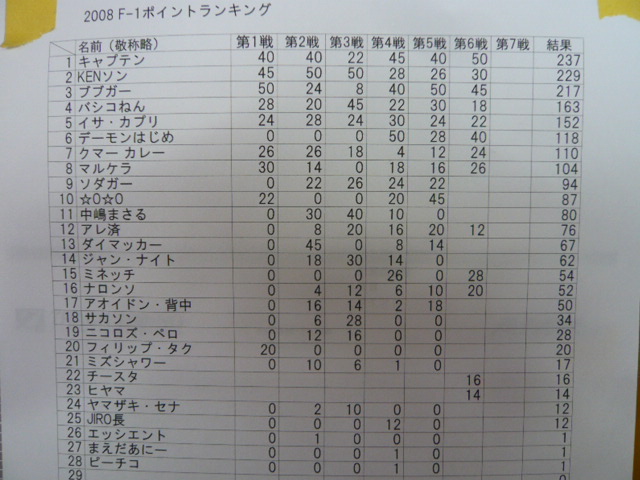 2008 F-1ポイントランキング
名前（敬称略） 第1戦 第2戦 第3戦 第4戦 第5戦 第6戦 第7戦 結果
1 キャプテン 40 40 22 45 40 50 237
2 KENソン 45 50 50 28 26 30 229
3 ブブガー 50 24 8 40 50 45 217
4 バシコねん 28 20 45 22 30 18 163
5 イサ・カプリ 24 28 24 30 24 22 152
6 デーモンはじめ 0 0 0 50 28 40 118
7 クマー カレー 26 26 18 4 12 24 110
8 マルケラ 30 14 0 18 16 26 104
9 ソダガー 0 22 26 24 22 94
10 ☆O☆O 22 0 0 20 45 87
11 中嶋まさる 0 30 40 10 0 80
12 アレ済 0 8 20 16 20 12 76
13 ダイマッカー 0 45 0 8 14 67
14 ジャン・ナイト 0 18 30 14 0 62
15 ミネッチ 0 0 0 26 0 28 54
16 ナロンソ 0 4 12 6 10 20 52
17 アオイドン・背中 0 16 14 2 18 50
18 サカソン 0 6 28 0 0 34
19 ニコロズ・ベロ 0 12 16 0 0 28
20 フィリップ・タク 20 0 0 0 0 20
21 ミズシャワー 0 10 6 1 0 17
22 チースタ 16 16
23 ヒヤマ 14 14
24 ヤマザキ・セナ 0 2 10 0 0 12
25 JIRO長 0 0 0 12 0 12
26 エッシエント 0 1 0 0 0 1
27 まえだあにー 0 0 0 1 0 1
28 ピーチコ 0 0 0 1 0 1
29 0